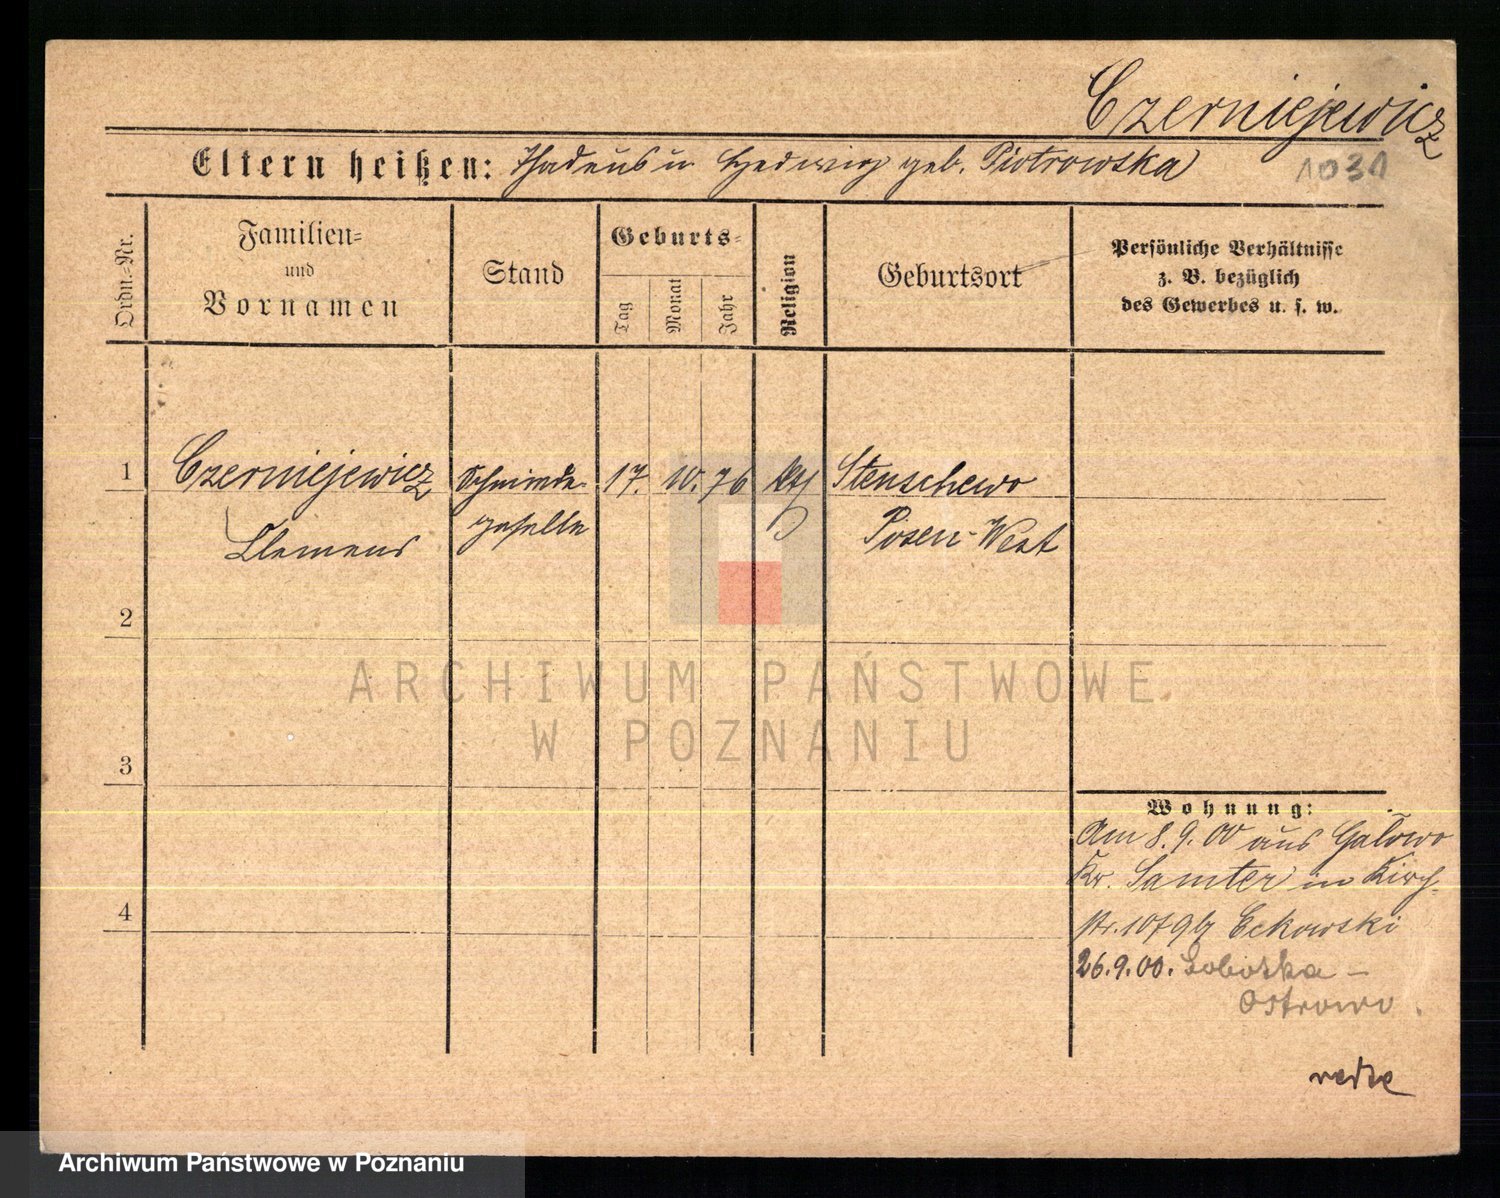 Czerniejewicz
Eltern heißen: Thadeus u Hedwig geb. Piotrowska
1031
Ordn.=Nr.
Familien=
und
Vornamen
Stand
Geburts=
Tag
Monat
Jahr
Religion
Geburtsort
Persönliche Verhältnisse
z. B. bezüglich
des Gewerbes u. s. w.
1
Czerniejewicz Schmiede- 17. 10. 76 kth Stenschewo
Clemens geselle Posen-West
2
ARCHIWUM PAŃSTWOWE
W POZNANIU
3
Wohnung:
Am 8.9.00 aus Galowo
Kr. Samter in Kirch-
str. 107 Eckowski
26.9.00. Sobotka –
Ostrowo.
4
Archiwum Państwowe w Poznaniu